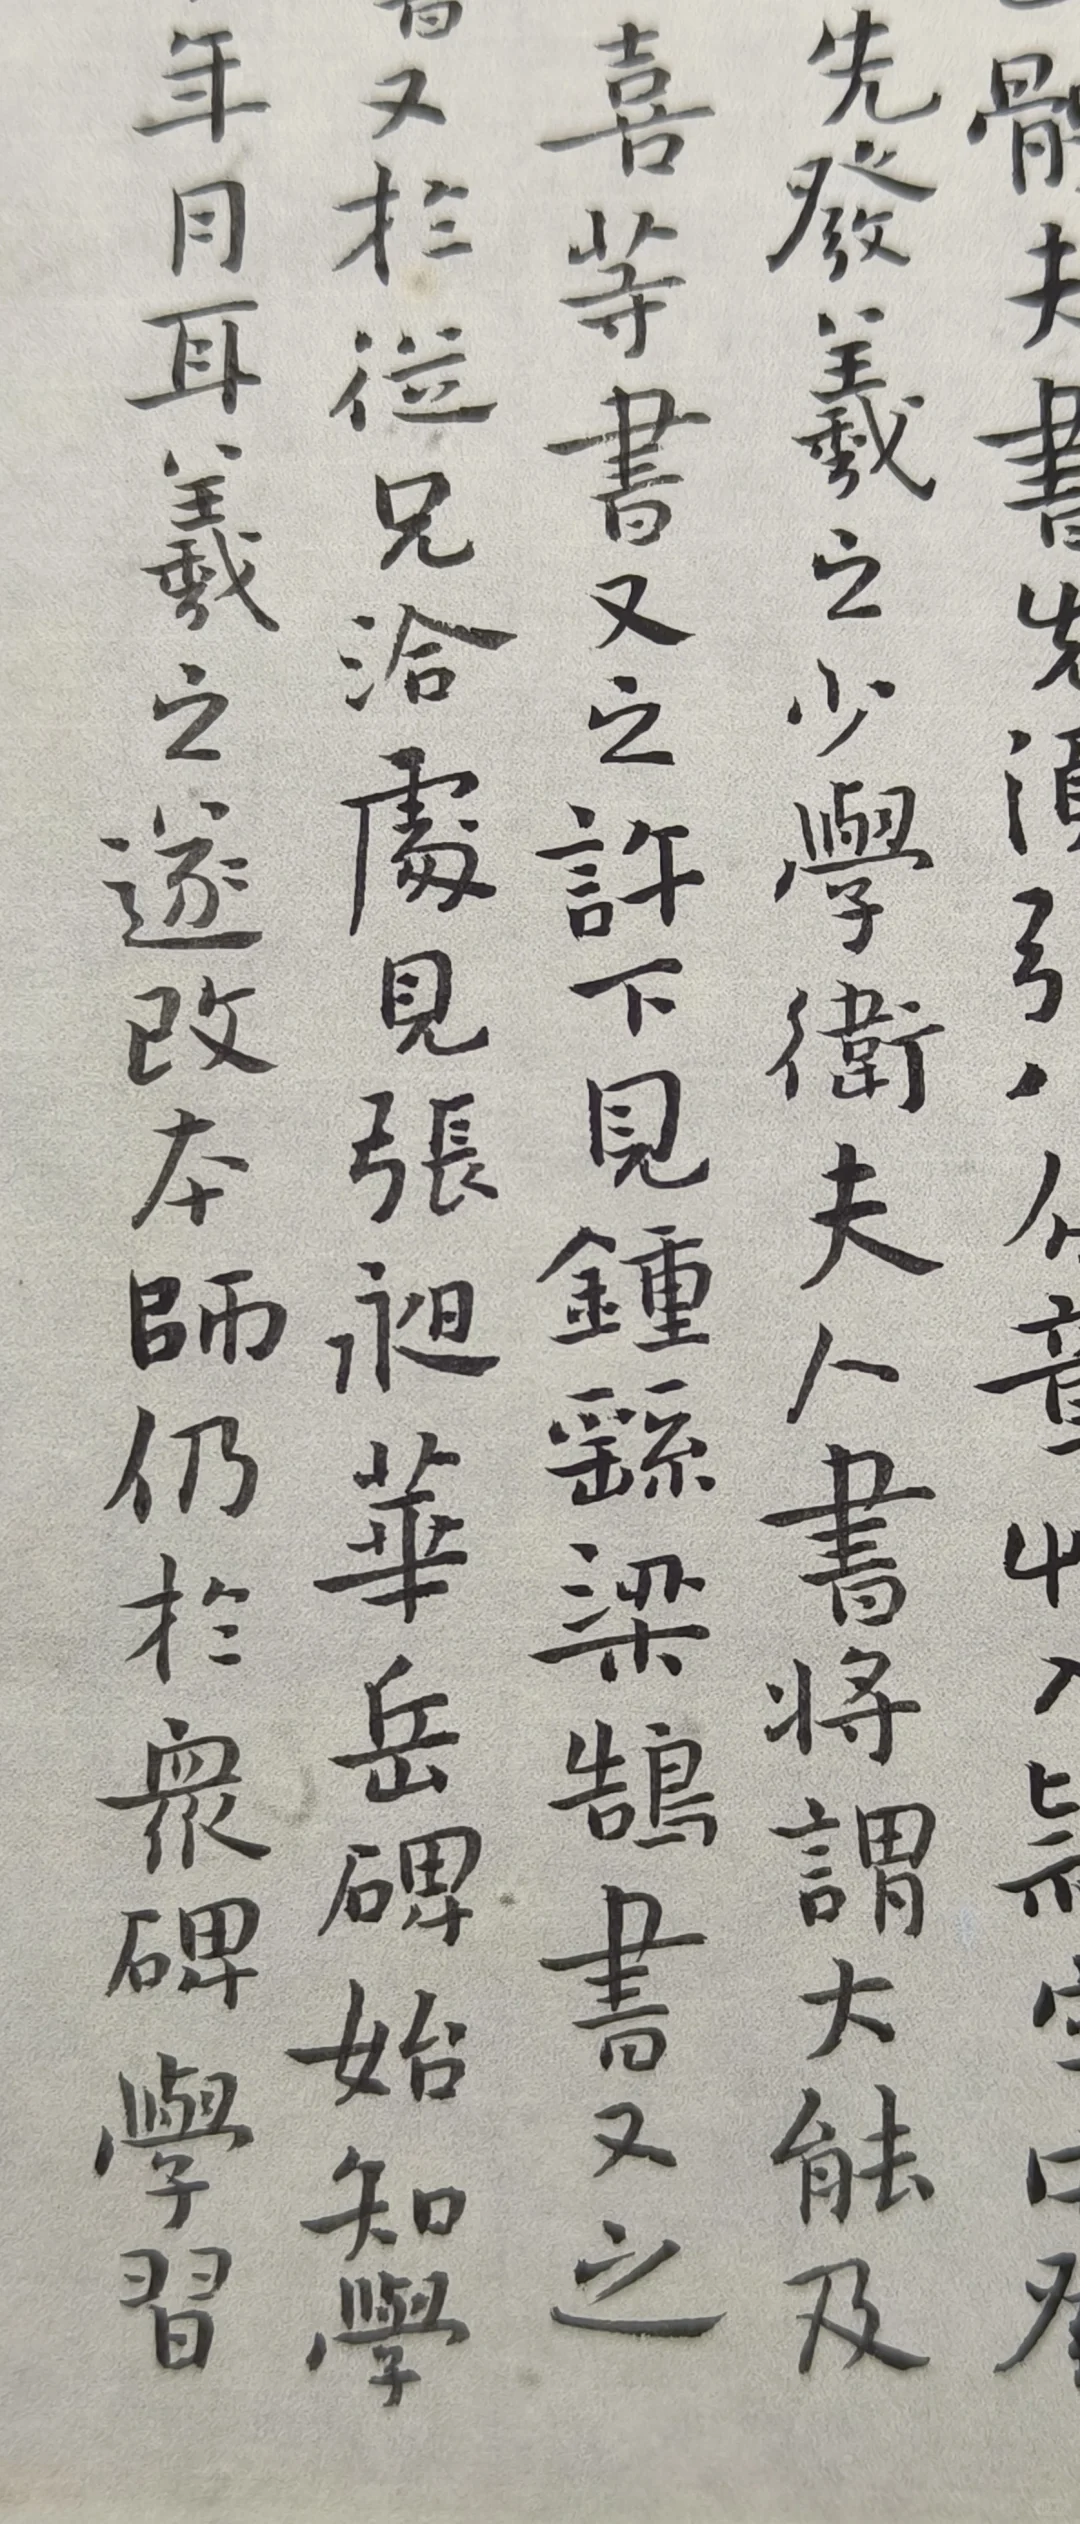 夫書先須引八分章草入隸字中發
先發羲之少學衛夫人書將謂大能及
喜等書又之許下見鍾繇梁鵠書又之
又於從兄洽處見張昶華岳碑始知學
年月耳羲之遂改本師仍於衆碑學習